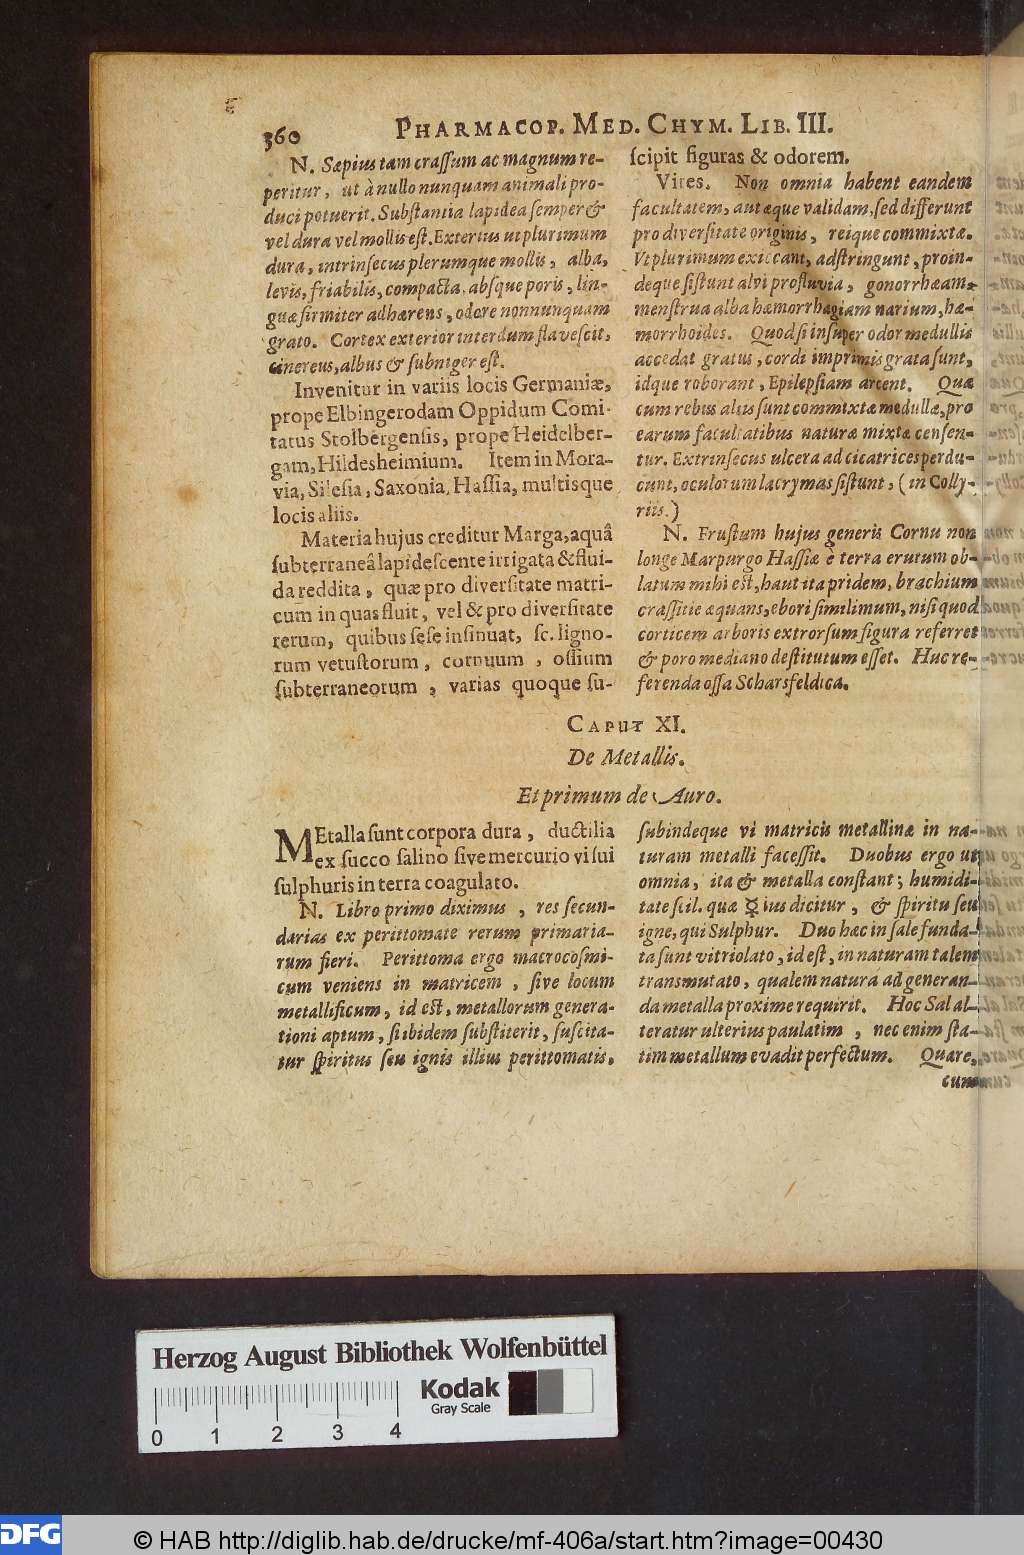 360
PHARMACOP. MED. CHYM. LIB. III.
N. Sæpius tam craſſum ac magnum re-
peritur, ut à nullo nunquam animali pro-
duci potuerit. Subſtantia lapidea ſemper &
vel dura vel mollis eſt. Exterius ut plurimum
dura, intrinſecus plerumque mollis, alba,
levis, friabilis, compacta, abſque poris, lin-
guæ firmiter adhærens, odore nonnunquam
grato. Cortex exterior interdum flaveſcit,
cinereus, albus & ſubniger eſt.
Invenitur in variis locis Germaniæ,
prope Elbingerodam Oppidum Comi-
tatus Stolbergenſis, prope Heidelber-
gam, Hildesheimium. Item in Mora-
via, Sileſia, Saxonia, Haſſia, multisque
locis aliis.
Materia hujus creditur Marga, aquâ
ſubterraneâ lapideſcente irrigata & flui-
da reddita, quæ pro diverſitate matri-
cum in quas fluit, vel & pro diverſitate
rerum, quibus ſeſe inſinuat, ſc. ligno-
rum vetuſtorum, cornuum, oſſium
ſubterraneorum, varias quoque ſu-
ſcipit figuras & odorem.
Vires. Non omnia habent eandem
facultatem, aut æque validam, ſed differunt
pro diverſitate originis, reique commixtæ.
Vt plurimum exiccant, adſtringunt, proin-
deque ſiſtunt alvi profluvia, gonorrhæam,
menſtrua alba hæmorrhagiam narium, hæ-
morrhoides. Quod ſi inſuper odor medullis
accedat gratus, cordi imprimis grata ſunt,
idque roborant, Epilepſiam arcent. Quæ
cum rebus aliis ſunt commixtæ medullæ, pro
earum facultatibus naturæ mixtæ cenſen-
tur. Extrinſecus ulcera ad cicatrices perdu-
cunt, oculorum lacrymas ſiſtunt, (in Colly-
riis.)
N. Fruſtum hujus generis Cornu non
longe Marpurgo Haſſiæ è terra erutum ob-
latum mihi eſt, haut ita pridem, brachium
craſſitie æquans, ebori ſimilimum, niſi quod
corticem arboris extrorſum figura referret
& poro mediano deſtitutum eſſet. Huc re-
ferenda oſſa Scharsfeldica.
CAPUT XI.
De Metallis.
Et primum de Auro.
MEtalla ſunt corpora dura, ductilia
ex ſucco ſalino ſive mercurio vi ſui
ſulphuris in terra coagulato.
N. Libro primo diximus, res ſecun-
darias ex perittomate rerum primaria-
rum fieri. Perittoma ergo macrocoſmi-
cum veniens in matricem, ſive locum
metallificum, id eſt, metallorum genera-
tioni aptum, ſi ibidem ſubſtiterit, ſuſcita-
tur ſpiritus ſeu ignis illius perittomatis,
ſubindeque vi matricis metallinæ in na-
turam metalli faceſſit. Duobus ergo ut
omnia, ita & metalla conſtant; humidi-
tate ſcil. quæ ☿ius dicitur, & ſpiritu ſeu
igne, qui Sulphur. Duo hæc in ſale funda-
ta ſunt vitriolato, id eſt, in naturam talem
transmutato, qualem natura ad generan-
da metalla proxime requirit. Hoc Sal al-
teratur ulterius paulatim, nec enim ſta-
tim metallum evadit perfectum. Quare,
cum
Herzog August Bibliothek Wolfenbüttel
Kodak
Gray Scale
0 1 2 3 4
DFG
© HAB http://diglib.hab.de/drucke/mf-406a/start.htm?image=00430